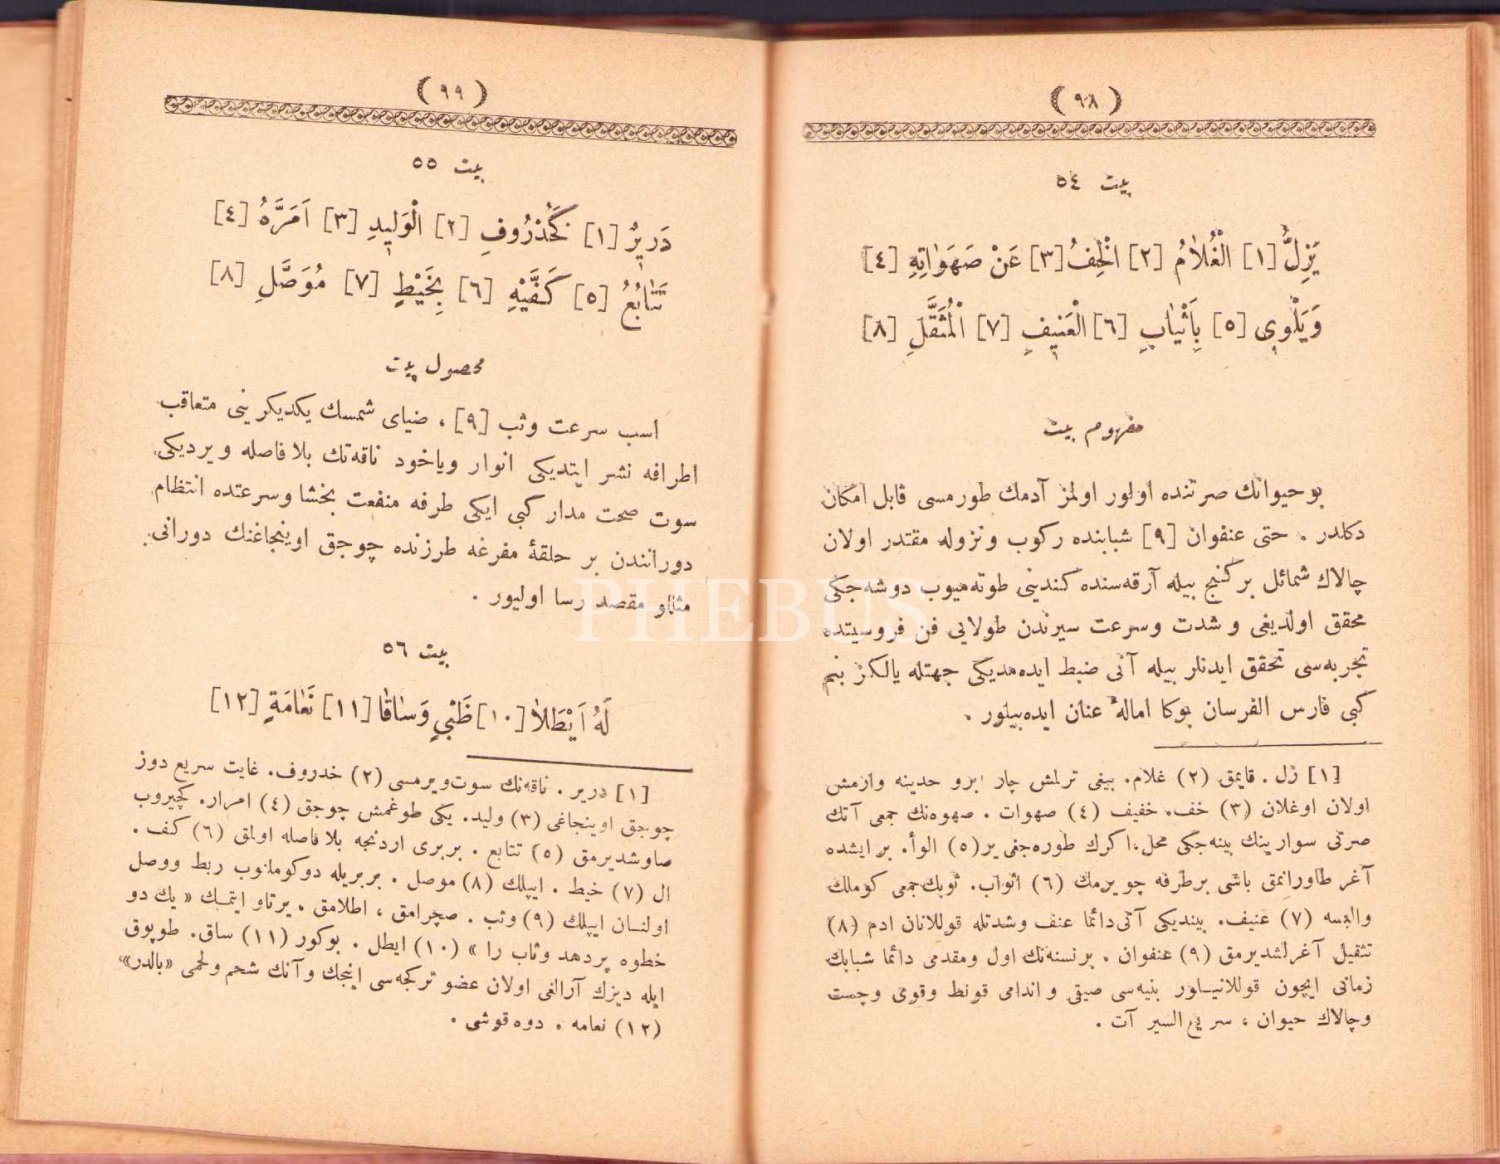 ( ٩٨ )
بيت ٥٤
يَزِلُّ [١] الْغُلاٰمُ [٢] الْخِفُ [٣] عَنْ صَهَوَاتِهِ [٤]
وَيَلْوِى [٥] بِاَثْيَابِ [٦] الْعَنِيفِ [٧] الْمُثَقَّلِ [٨]
مفهوم بيت
بو حيوانك صرتنده اولور اولمز آدمك طورمسى قابل امكان
دكلدر . حتى عنفوان [٩] شبابنده ركوب ونزوله مقتدر اولان
چالاك شمائل بر كنج بيله آرقه‌سنده كندينى طوته‌ميوب دوشه‌جكى
محقق اولديغى و شدت وسرعت سيرندن طولايى فن فروسيتده
تجربه‌سى تحقق ايدنلر بيله آنى ضبط ايده‌مديكى جهتله يالكز بنم
كبى فارس الفرسان بوكا امالهٔ عنان ايده‌بيلور .
[١] زل . قايمق (٢) غلام. بيغى ترلمش چار ابرو حدينه وارمش
اولان اوغلان (٣) خف. خفيف (٤) صهوات . صهوه‌نك جمعى آتك
صرتى سوارينك بينه‌جكى محل، اكرك طوره‌جغى ير (٥) الوأ. بر ايشده
آغر طاورانمق باشى برطرفه چويرمك (٦) اثواب. ثوبك جمعى كوملك
والبسه (٧) عنيف. بينديكى آتى دائما عنف وشدتله قوللانان ادم (٨)
تثقيل آغرلشديرمق (٩) عنفوان . برنسنه‌نك اول ومقدمى دائما شبابك
زمانى ايچون قوللانيلور بنيه‌سى صيقى و اندامى قونط وقوى وچست
وچالاك حيوان ، سريع السير آت .
( ٩٩ )
بيت ٥٥
دَرِيرٌ [١] كَخُذْرُوفِ [٢] الْوَلِيدِ [٣] اَمَرَّهُ [٤]
تَتَابُعُ [٥] كَفَّيْهِ [٦] بِخَيْطٍ [٧] مُوَصَّلِ [٨]
محصول بيت
اسب سرعت وثب [٩] ، ضياى شمسك يكديكرينى متعاقب
اطرافه نشر ايتديكى انوار وياخود ناقه‌نك بلا فاصله ويرديكى
سوت صحت مدار كبى ايكى طرفه منفعت بخشا وسرعتده انتظام
دورانندن بر حلقهٔ مفرغه طرزنده چوجق اوينجاغنك دورانى
مثللو مقصد رسا اوليور .
بيت ٥٦
لَهُ اَيْطَلاٰ [١٠] ظَبْيٍ وَسٰاقٰا [١١] نَعٰامَةٍ [١٢]
[١] درير . ناقه‌نك سوت‌ويرمسى (٢) خدروف. غايت سريع دوز
چوجق اوينجاغى (٣) وليد. يكى طوغمش چوجق (٤) امرار. كچيروب
صاوشديرمق (٥) تتابع . بربرى اردنجه بلا فاصله اولمق (٦) كف .
ال (٧) خيط . ايپلك (٨) موصل . بربريله دوكوملنوب ربط ووصل
اولنـان ايپلك (٩) وثب . صچرامق ، اطلامق . پرتاو ايتمـك « يك دو
خطوه پردهد وثاب را » (١٠) ايطل . بوكور (١١) ساق. طوپوق
ايله ديزك آرالغى اولان عضو تركجه‌سى اينجك وآنك شحم ولحمى «بالدر»
(١٢) نعامه . دوه قوشى .
PHEBUS